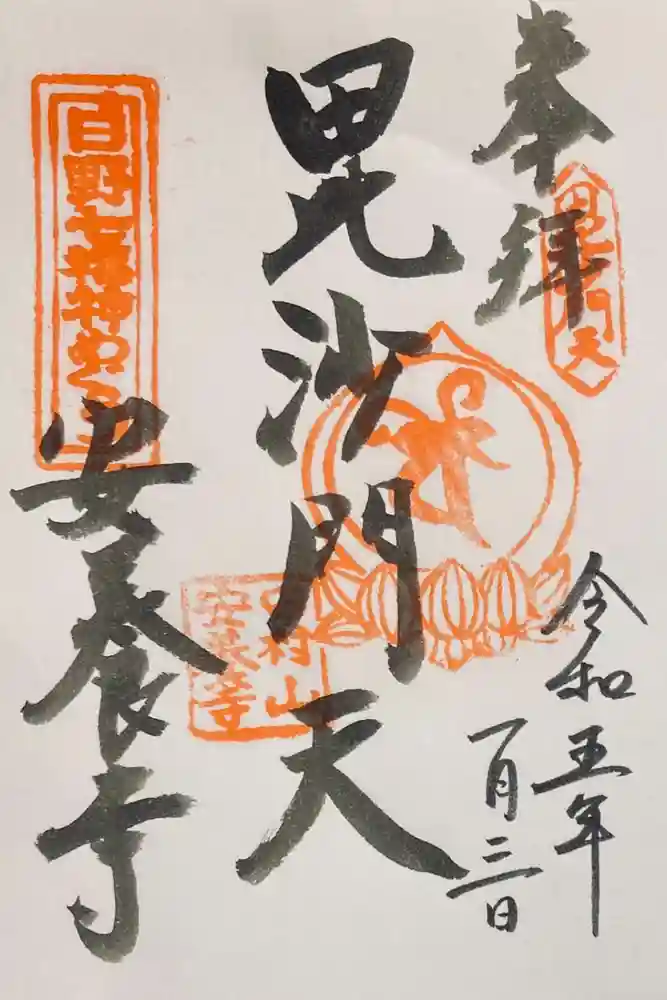 奉拝
毘沙門天
令和五年
一月三日
毘沙門天
日野七福神めぐり
安養寺
田村山
安養寺